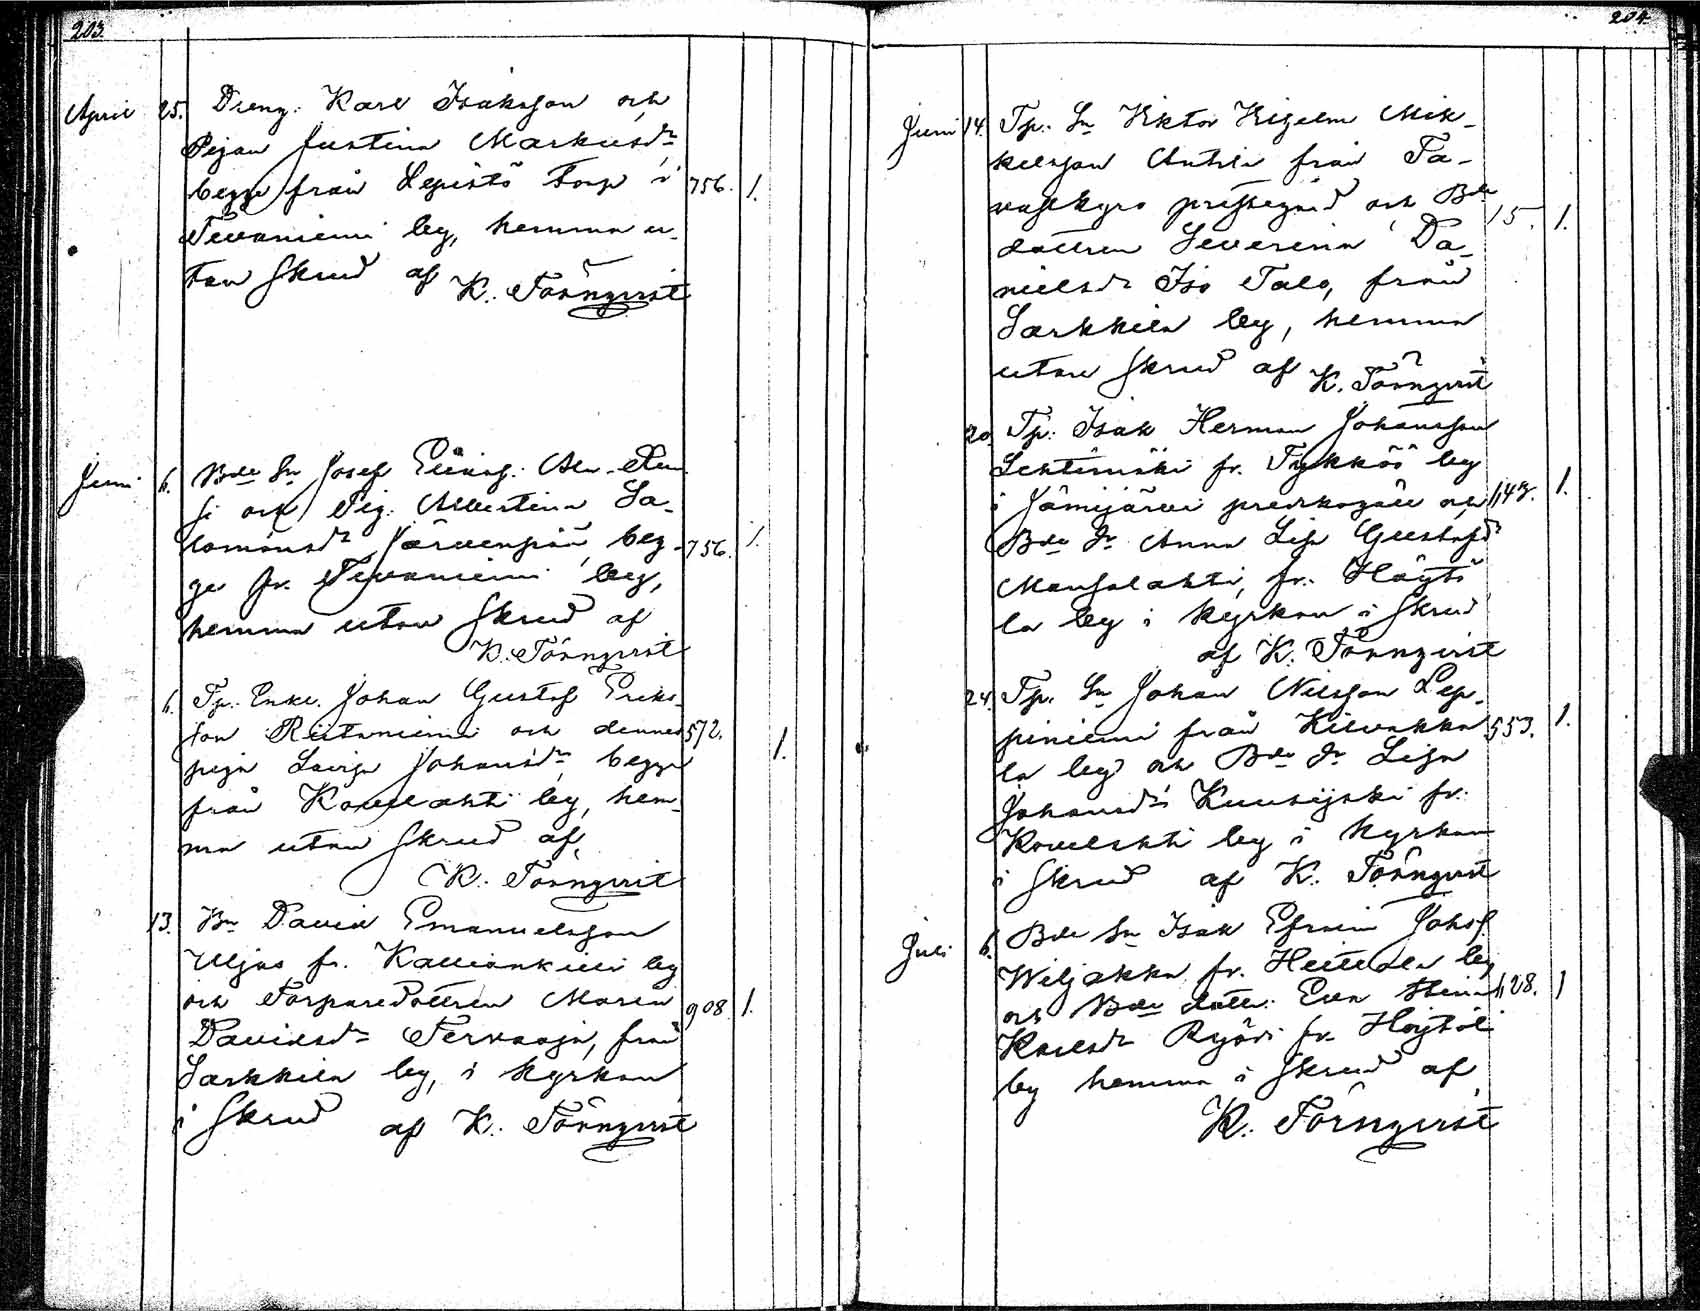 203.
April 25. Dreng. Karl Isaksson och
Pigan Justina Markusdr
begge från Lepistö torp i 756. 1.
Tevaniemi by, hemma u-
tan skrud af K. Törnqvist
Juni 6. Bde Sn Josef Eliasf. Ala-
si och Pig. Albertina Sa-
lomonsdr Järvenpää, beg- 756. 1.
ge fr. Tevaniemi by,
hemma utan skrud af
K. Törnqvist
6. Tp. Enkl. Johan Gustaf Eriks-
son Riitaniemi och dennes 572.
piga Lovisa Johansdr begge 1.
från Kovelahti by, hem-
ma utan skrud af
K. Törnqvist
13. Bn David Emanuelsson
Uljas fr. Kallionkieli by
och Torparedottren Maria 908. 1.
Davidsdr Tervaoja, från
Sarkkila by, i kyrkan
i skrud af K. Törnqvist
204.
Juni 14. Tp. Sn Viktor Vilhelm Mik-
kelsson Anttila från Ta-
vastkyro prestegård och Bde 15. 1.
dottren Severina Da-
nielsdr Iso Talo, från
Sarkkila by, hemma
utan skrud af K. Törnqvist
20. Tp. Isak Herman Johansson
Lehtimäki fr. Tykköö by
i Jämijärvi predikogäll och 1,143. 1.
Bde Dr Anna Lisa Gustafsdr
Mansolahti, fr. Höytö
la by i kyrkan i skrud
af K. Törnqvist
24. Tp. Sn Johan Nilsson Lep-
piniemi från Kilvakka 553. 1.
la by och Bde Dr Lisa
Johansdr Kuusijoki fr.
Kovelahti by i kyrkan
i skrud af K. Törnqvist
Juli 6. Bde Sn Isak Efraim Johsf.
Wiljakka fr. Heittola by
och Bde dottr. Eva Stina 1,128. 1
Karlsdr Ryödi fr. Höjtölä
by hemma i skrud af
K. Törnqvist